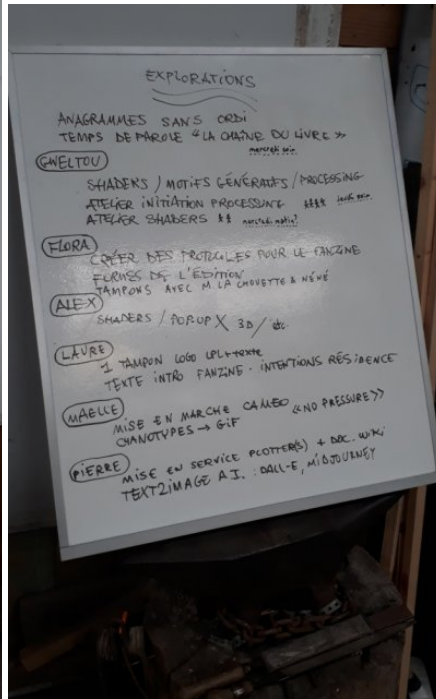 EXPLORATIONS
ANAGRAMMES SANS ORDI
TEMPS DE PAROLE "LA CHAÎNE DU LIVRE"
mercredi soir
GWELTOU
SHADERS / MOTIFS GÉNÉRATIFS / PROCESSING
ATELIER INITIATION PROCESSING **** jeudi soir
ATELIER SHADERS ** mercredi matin?
FLORA
CRÉER DES PROTOCOLES POUR LE FANZINE
FORMES DE L'ÉDITION
TAMPONS AVEC M. LA CHOUETTE & NÉNÉ
ALEX
SHADERS / POP-UP X 3D / etc.
LAURE
1 TAMPON LOGO LPL + texte
TEXTE INTRO FANZINE - INTENTIONS RÉSIDENCE
MAELLE
MISE EN MARCHE CAMEO "NO PRESSURE"
CYANOTYPES → GIF
PIERRE
MISE EN SERVICE PLOTTER(S) + DOC. WIKI
TEXT2IMAGE A.I. : DALL-E, MIDJOURNEY